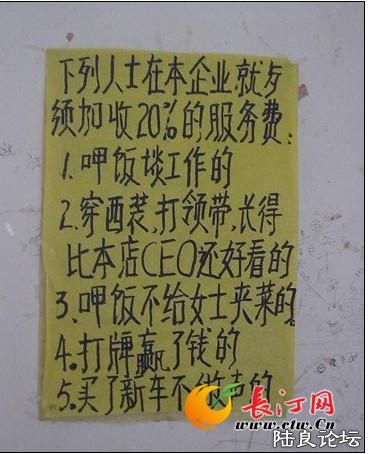 下列人士在本企业就歺
须加收20%的服务费:
1.呷饭谈工作的
2.穿西装,打领带,长得
比本店CEO还好看的
3.呷饭不给女士夹菜的。
4.打牌赢了钱的
5.买了新车不做声的
长汀网
www.ctw.cn
陆良论坛